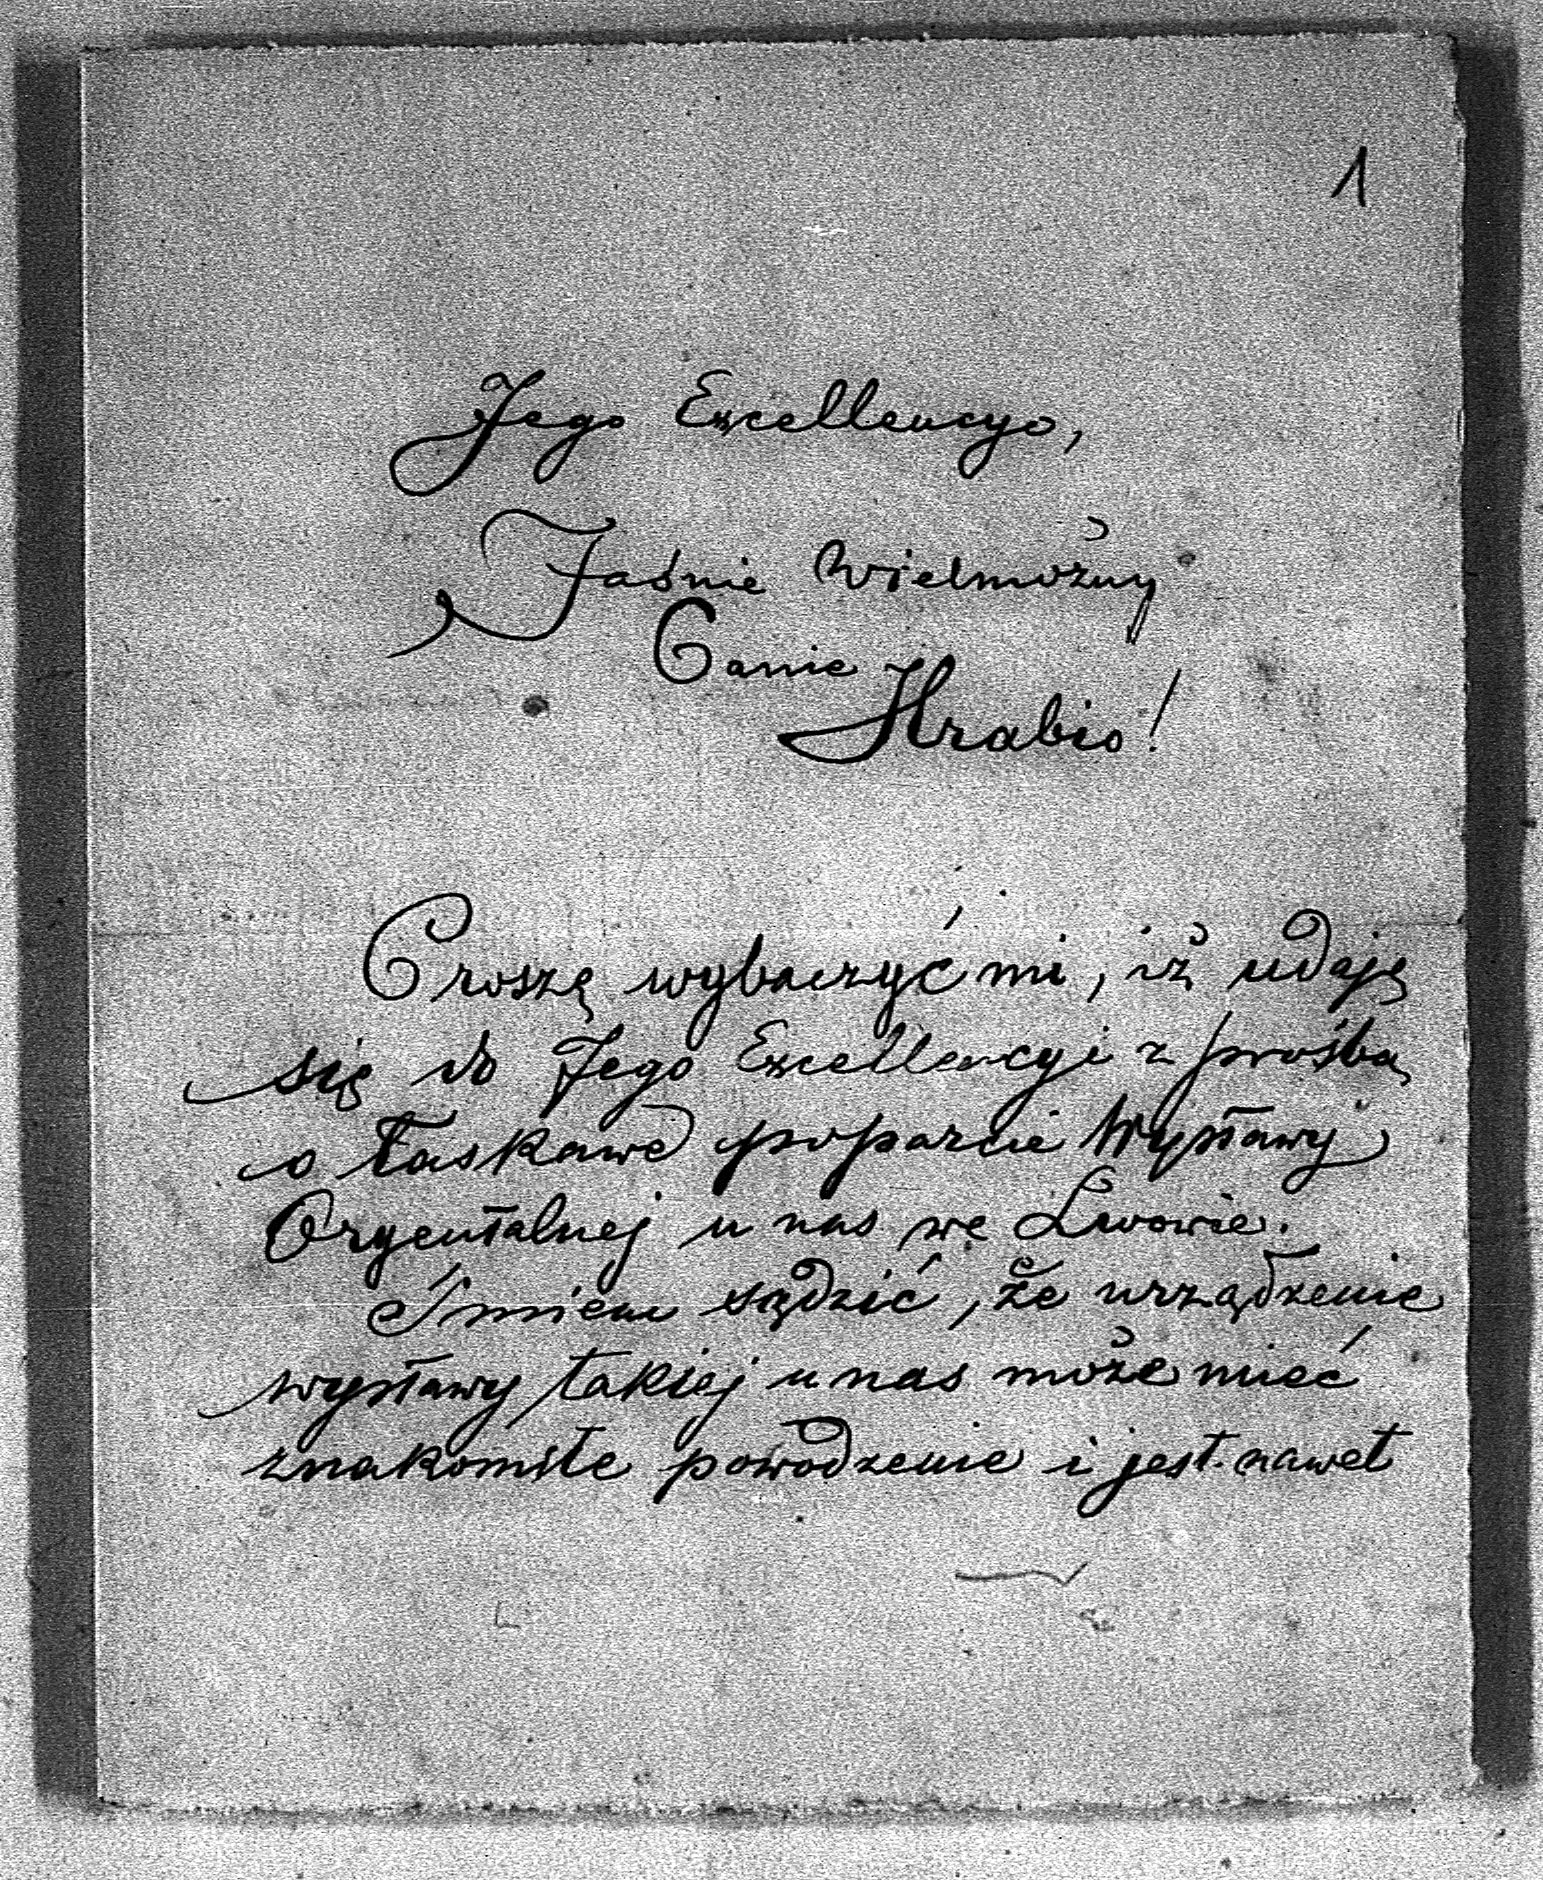 1
Jego Excellencyo,
Jaśnie Wielmożny
Panie
Hrabio!
Proszę wybaczyć mi, iż udaję
się do Jego Excellencyi z prośbą
o łaskawe poparcie Wystawy
Oryentalnej u nas we Lwowie.
Śmiem sądzić, że urządzenie
wystawy takiej u nas może mieć
znakomite powodzenie i jest nawet